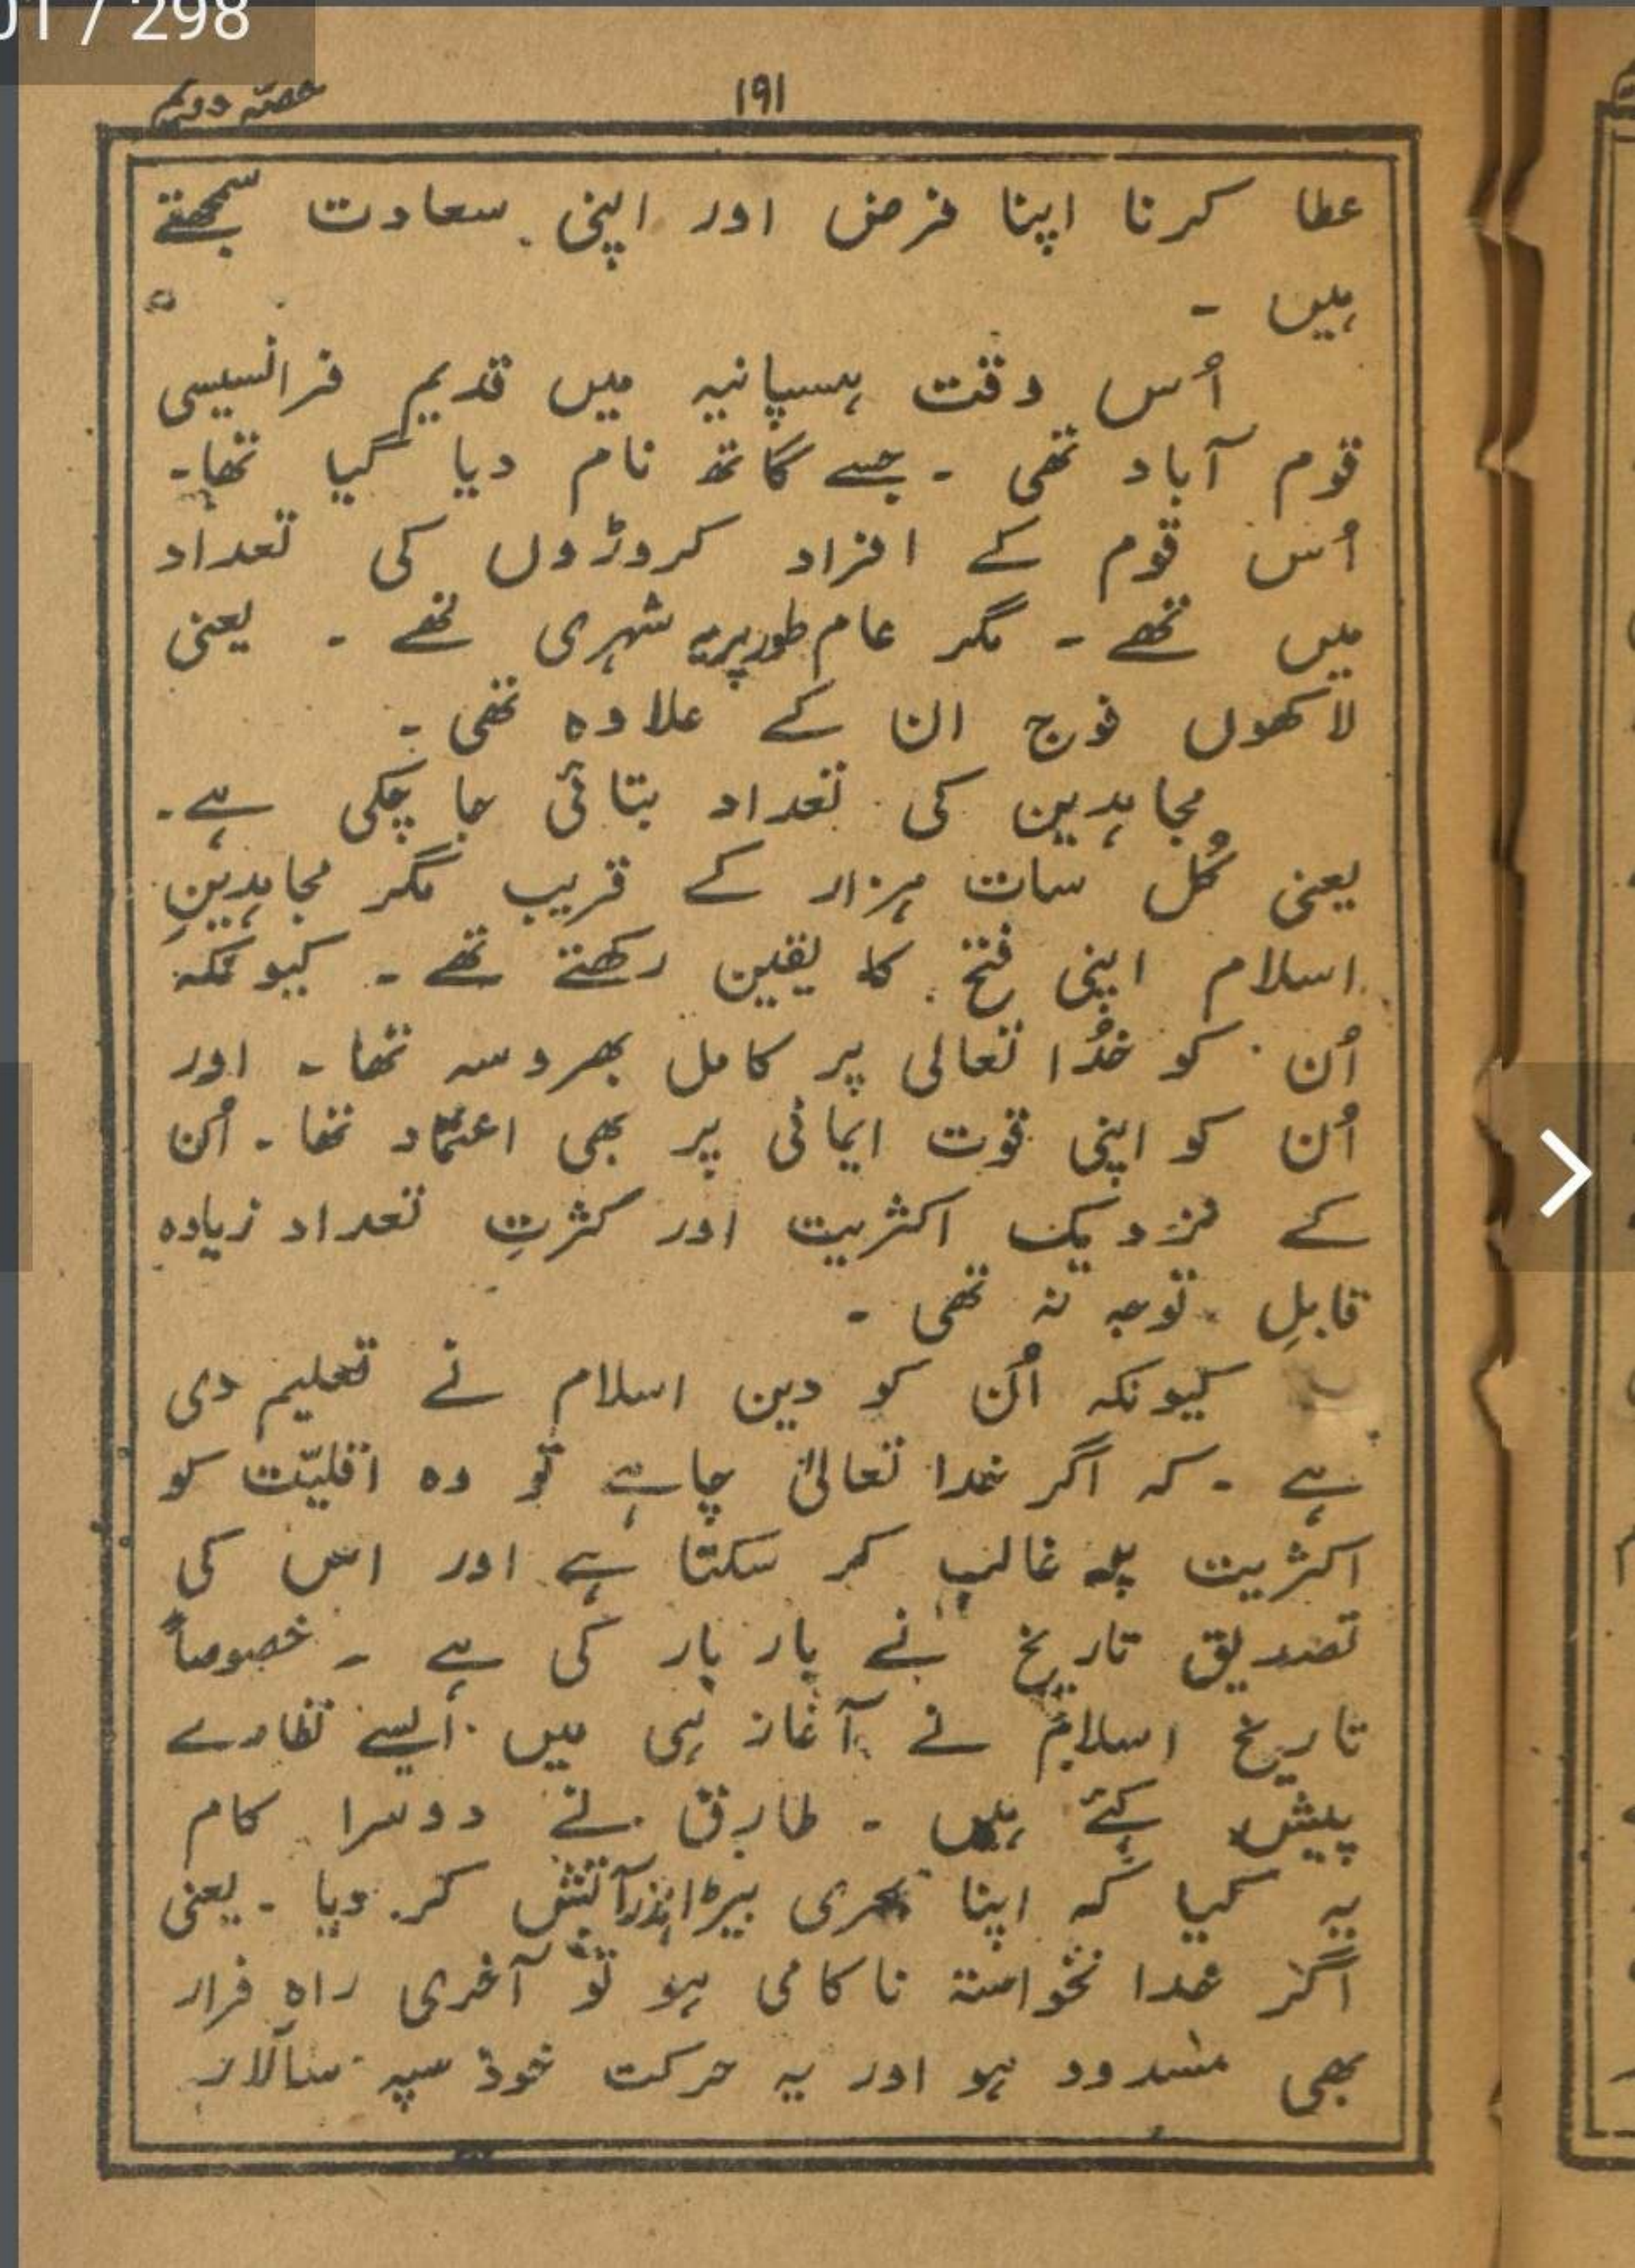 01 / 298
۱۹۱
حصّہ دویم
عطا کرنا اپنا فرض اور اپنی سعادت سمجھتے
ہیں ۔
اُس وقت ہسپانیہ میں قدیم فرانسیسی
قوم آباد تھی ۔ جسے گاتھ نام دیا گیا تھا۔
اُس قوم کے افراد کروڑوں کی تعداد
میں تھے ۔ مگر عام طور پر یہ شہری تھے ۔ یعنی
لاکھوں فوج ان کے علاوہ تھی ۔
مجاہدین کی تعداد بتائی جا چُکی ہے ۔
یعنی کُل سات ہزار کے قریب مگر مجاہدینِ
اسلام اپنی فتح کا یقین رکھتے تھے ۔ کیونکہ
اُن کو خُدا تعالی پر کامل بھروسہ تھا ۔ اور
اُن کو اپنی قوت ایمانی پر بھی اعتماد تھا ۔ اُن
کے نزدیک اکثریت اور کثرتِ تعداد زیادہ
قابلِ توجہ نہ تھی ۔
کیونکہ اُن کو دین اسلام نے تعلیم دی
ہے ۔ کہ اگر خدا تعالیٰ چاہے تو وہ اقلیّت کو
اکثریت پہ غالب کر سکتا ہے اور اس کی
تصدیق تاریخ نے بار بار کی ہے ۔ خصوصاً
تاریخ اسلام نے آغاز ہی میں ایسے نظارے
پیش کئے ہیں ۔ طارق نے دوسرا کام
یہ کیا کہ اپنا بحری بیڑا نذرآتش کر دیا ۔ یعنی
اگر خدا نخواستہ ناکامی ہو تو آخری راہ فرار
بھی مسدود ہو اور یہ حرکت خود سپہ سالار